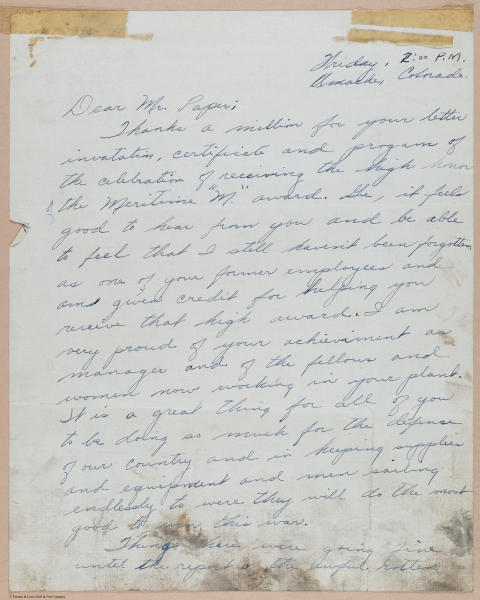 Friday, 2:00 P.M.
Amache, Colorado.
Dear Mr. Paper;
Thanks a million for your letter
invatation, certificate and program of
the celebration of receiving the high honor
the Meritrine "M" award. Gee, it feels
good to hear from you and be able
to feel that I still haven't been forgotten
as one of your former employees and
and given credit for helping you
receive that high award. I am
very proud of your achieviment as
manager and of the fellows and
women now working in your plant.
It is a great thing for all of you
to be doing so much for the defense
of our country and in keeping supplies
and equipment and men sailing
endlessly to were they will do the most
good to win this war.
Things here were going fine
until the report of the awful rotten